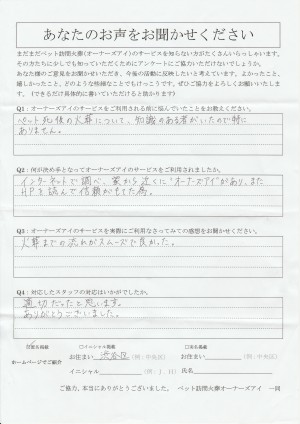 あなたのお声をお聞かせください
まだまだペット訪問火葬(オーナーズアイ)のサービスを知らない方がたくさんいらっしゃいます。
その方たちに少しでも知っていただくためにアンケートにご協力いただけないでしょうか。
あなた様のご意見をお聞かせいただき、今後の活動に反映したいと考えています。よかったこと、
嬉しかったこと、どのような些細なことでもけっこうです。ぜひご協力をよろしくお願いいたしま
す。(できるだけ具体的に書いていただけると助かります)
Q1:オーナーズアイのサービスをご利用される前に悩んでいたことをお教えください。
ペット死後の火葬について、知識のある者がいたので特に
ありません。
Q2:何が決め手となってオーナーズアイのサービスをご利用されましたか。
インターネットで調べ、家から近くに"オーナーズアイ"があり、また
HPを読んで信頼がもてた為。
Q3:オーナーズアイのサービスを実際にご利用なさってみての感想をお聞かせください。
火葬までの流れがスムーズで良かった。
Q4:対応したスタッフの対応はいかがでしたか。
適切だったと思います。
ありがとうございました。
匿名掲載 □イニシャル掲載 □実名掲載
ホームページでご紹介
お住まい 渋谷区 (例:中央区) お住まい (例:中央区)
イニシャル (例:J.H) 氏名
ご協力、本当にありがとうございました。 ペット訪問火葬オーナーズアイ 一同